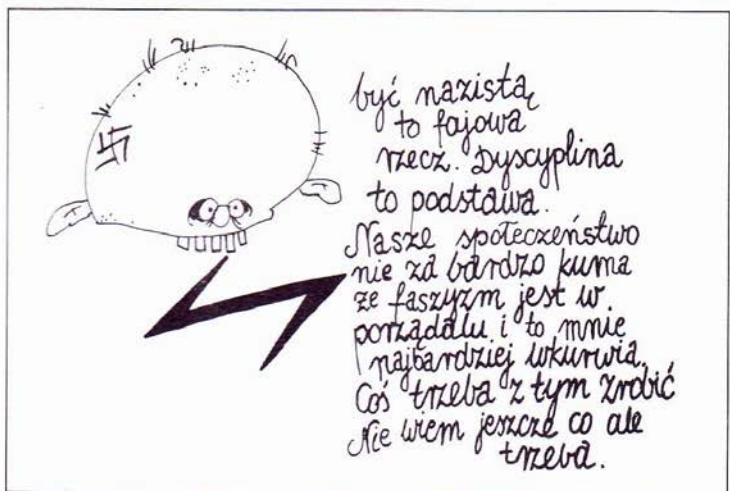 być nazistą
to fajowa
rzecz. Dyscyplina
to podstawa.
Nasze społeczeństwo
nie za bardzo kuma
że faszyzm jest w
porządalu i to mnie
najbardziej wkurwia.
Coś trzeba z tym zrobić
Nie wiem jeszcze co ale
trzeba.